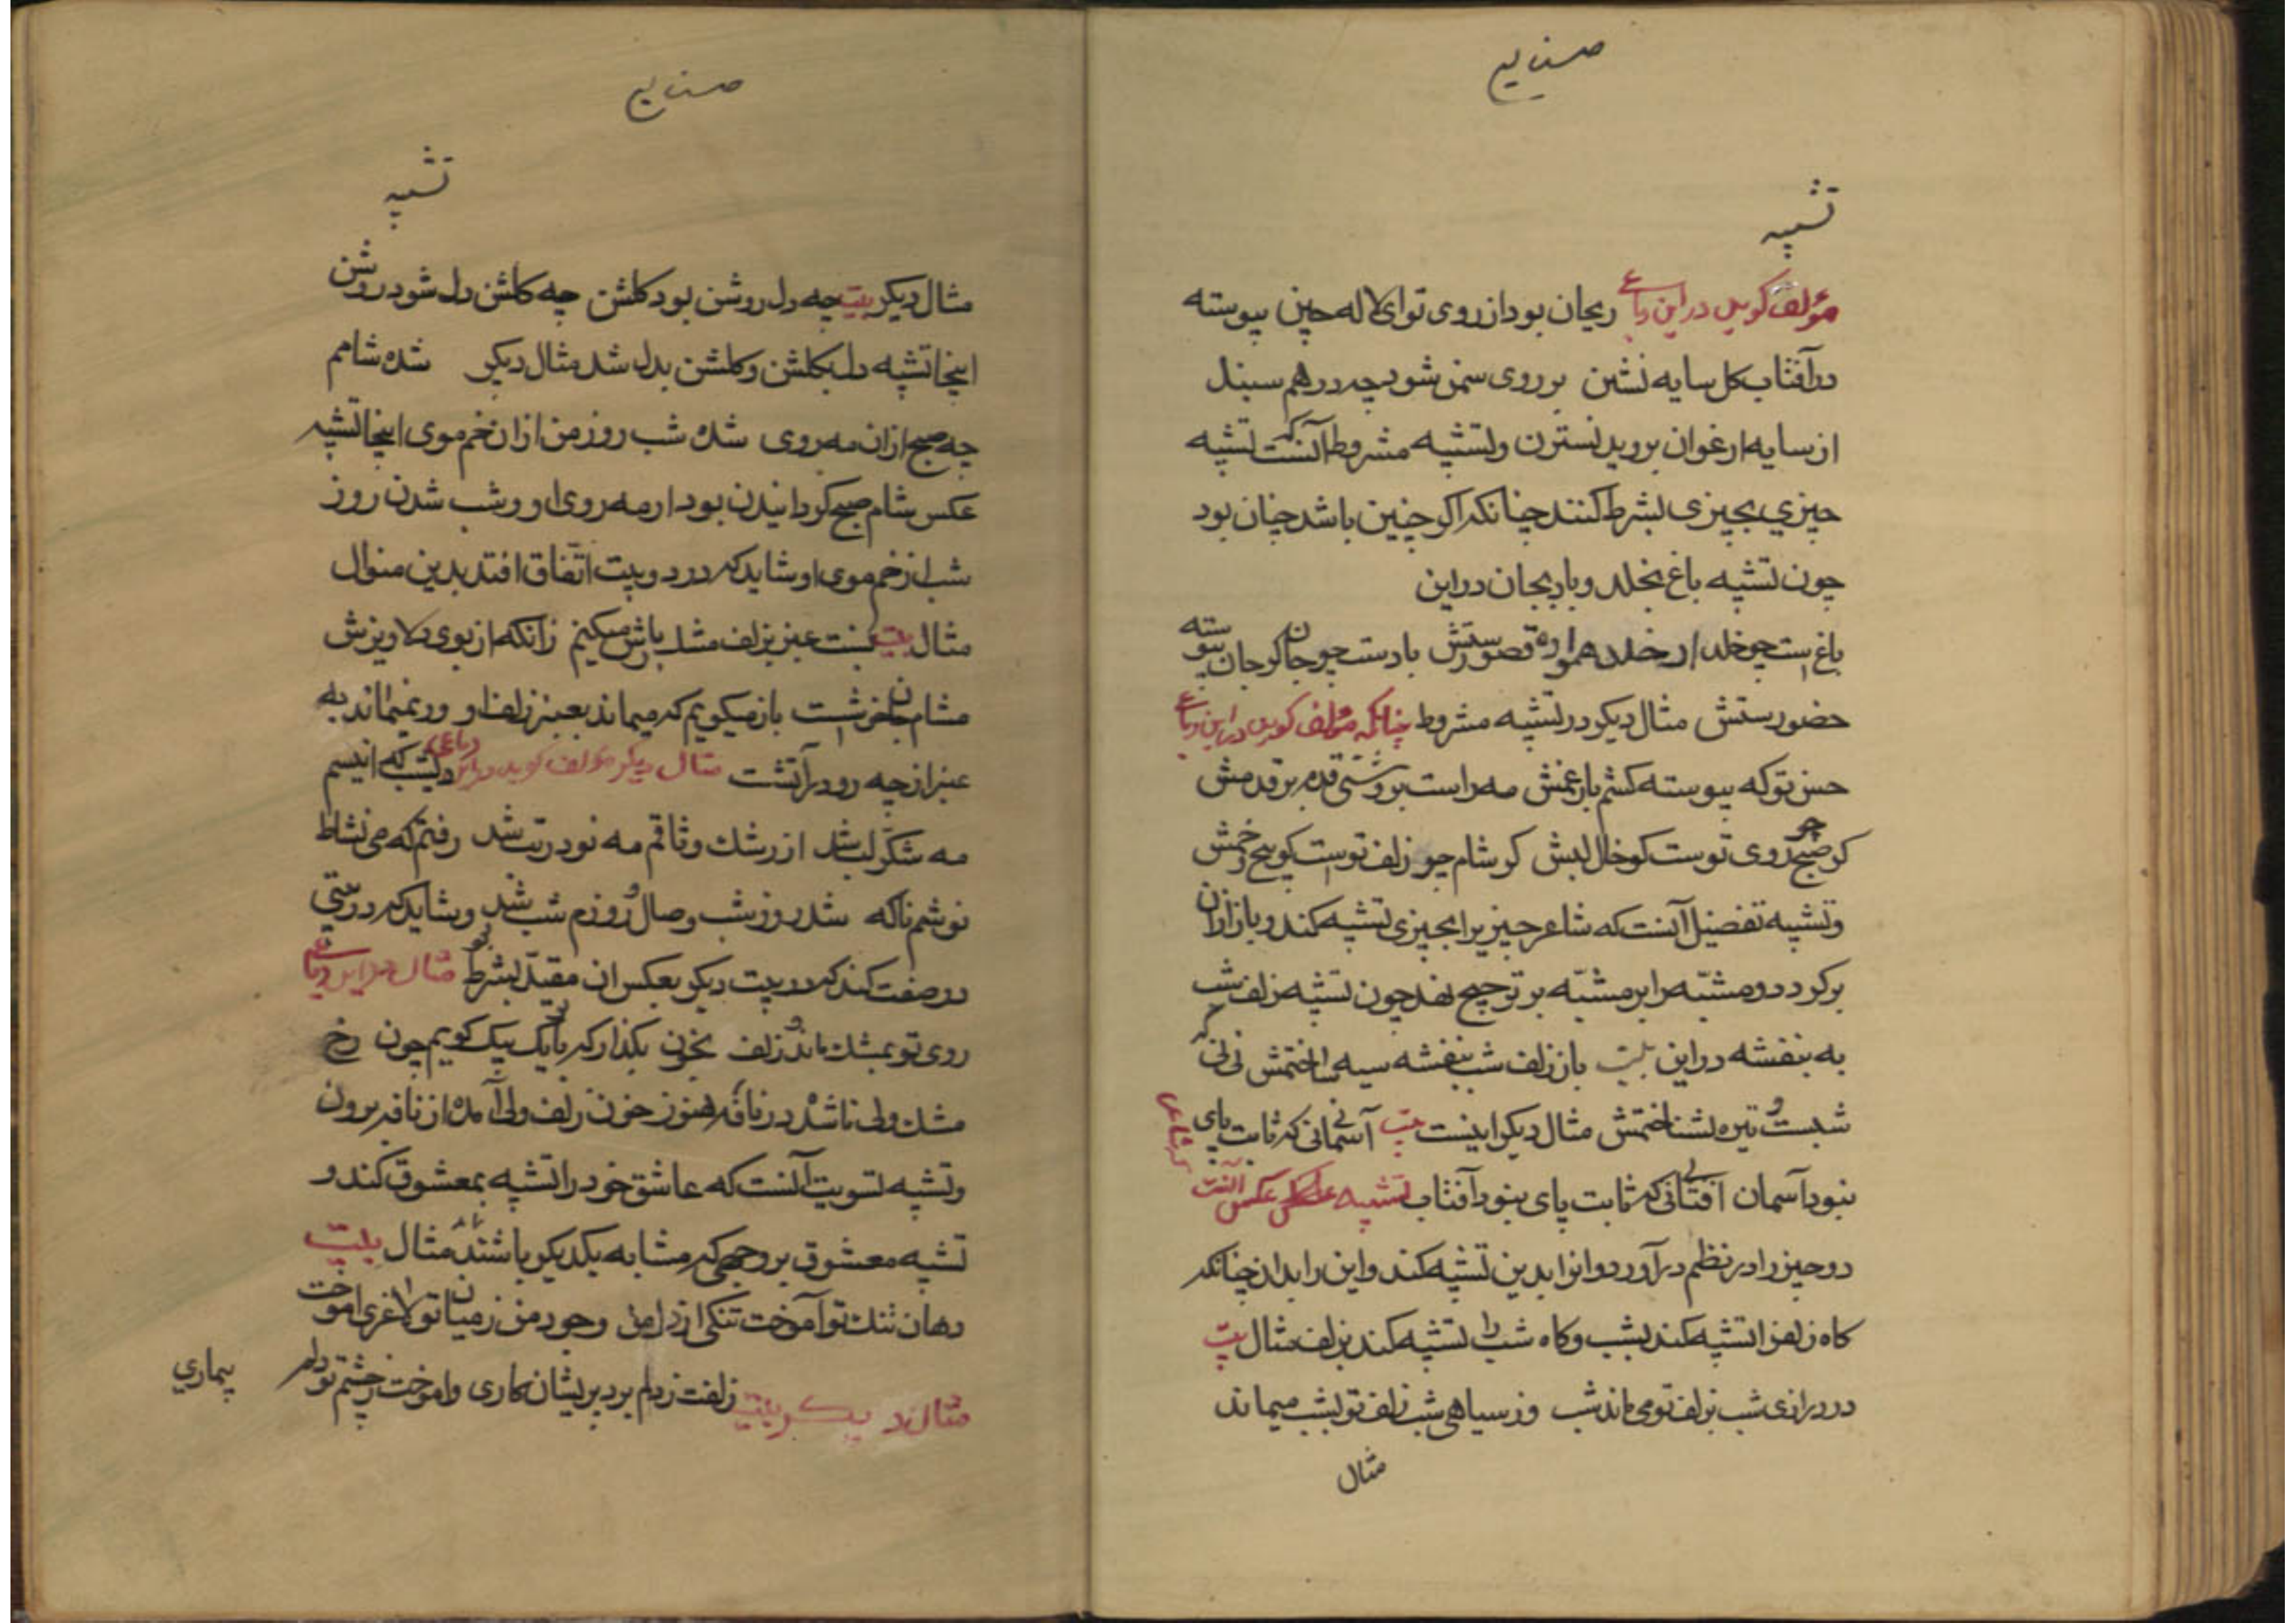 صنایع
تشبیه
مؤلف کوید در این رباعی ریحان بود از روی تو ای لاله جبین پیوسته
در آفتاب کل سایه نشین بر روی سمن شود چه درهم سنبل
از سایه ارغوان بروید نسترن و تشبیه مشروط آنست که تشبیه
چیزی بچیزی بشرط کنند چنانکه اکر چنین باشد چنان بود
چون تشبیه باغ بخلد و باد بجان در این
باغ است چو خلد ار خلد همواره قصورستش بادست چو جان کر جان پیوسته
حضورستش مثال دیکر در تشبیه مشروط چنانکه مؤلف کوید در این رباعی
حسن تو که پیوسته کشم بار غمش مه راست بروشنی قدم بر قدمش
کر صبح چو روی توست کو خال لبش کر شام چو زلف توست کو پیچ و خمش
و تشبیه تفضیل آنست که شاعر چیزیرا بچیزی تشبیه کند و باز از ان
برکردد و مشبّه را بر مشبّه به ترجیح نهد چون تشبیه زلف شب
به بنفشه در این بیت بازلف شب بنفشه سیه ساختمش نی نی که
شبست و تیره نشناختمش مثال دیکر اینست بیت آسمانی که ثابت پای
نبود آسمان افتابی که ثابت پای نبود آفتاب تشبیه عکس آنست که شاعر
دو چیز را در نظم در آورد و انرا بدین تشبیه کند و این را بدان چنانکه
کاه زلف را تشبیه کند بشب و کاه شب را تشبیه کند بزلف مثال بیت
در درازی شب بزلف تو می ماند شب وز سیاهی شب زلف تو بشب میماند
مثال
صنایع
تشبیه
مثال دیکر بیت چه دل روشن بود کلشن چه کلشن دل شود روشن
اینجا تشبیه دل بکلشن و کلشن بدل شد مثال دیکر شده شامم
چه صبح از ان مه روی شده شب روز من از ان خم موی اینجا تشبیه
عکس شام صبح کردانیدن بود از مه روی او و شب شدن روز
شب از خم موی او شاید که در دو بیت اتفاق افتد بدین منوال
مثال بیت نسبت عنبر بزلف مشک بارش میکنیم زانکه از بوی دلاویزش
مشام جان خوشست باز میکویم که میماند بعنبر زلف او ور نمیماند به
عنبر از چه رو در آتشست مثال دیکر مؤلف کوید در این رباعی دیشب که انیسم
مه شکر لب شد از رشک وثاقم مه نو در تب شد رفتم که می نشاط
نوشم ناکه شد روز شب وصال و روزم شب شد و شاید که درستی
در صفت کند که در بیت دیکر بعکس ان مقید بشرط بود مثال در این رباعی
روی تو بمشک ماند و زلف بخون بکذار که تا یک بیک کویم چون رخ
مشک ولی ناشده در نافه هنوز خون زلف ولی آمده از نافه برون
و تشبیه تسویت آنست که عاشق خود را تشبیه بمعشوق کند و
تشبیه معشوق بر وجهی که مشابه یکدیکر باشند مثال بیت
دهان تنک تو آموخت تنکی از دل من وجود من ز میان تو لاغری اموخت
مثال دیکر بیت زلفت ز دلم برد پریشان کاری واموخت ز چشم تو دلم
بیماری